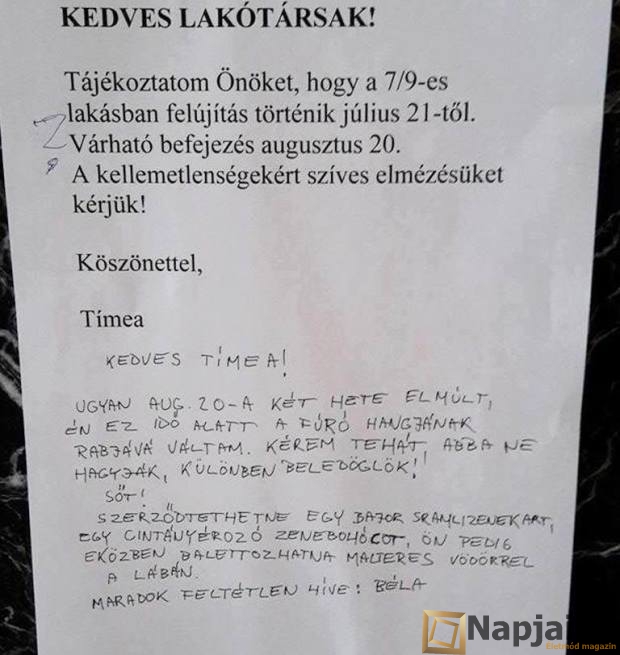 KEDVES LAKÓTÁRSAK!
Tájékoztatom Önöket, hogy a 7/9-es
lakásban felújítás történik július 21-től.
Várható befejezés augusztus 20.
A kellemetlenségekért szíves elmézésüket
kérjük!
Köszönettel,
Tímea
KEDVES TÍMEA!
UGYAN AUG. 20-A KÉT HETE ELMÚLT,
ÉN EZ IDŐ ALATT A FÚRÓ HANGJÁNAK
RABJÁVÁ VÁLTAM. KÉREM TEHÁT, ABBA NE
HAGYJÁK, KÜLÖNBEN BELEDÖGLÖK!
SŐT!
SZERZŐDTETHETNE EGY BAJOR SRAMLIZENEKART,
EGY CINTÁNYÉROZÓ ZENEBOHÓCOT, ÖN PEDIG
EKÖZBEN BALETTOZHATNA MALTERES VÖDÖRREL
A LÁBÁN.
MARADOK FELTÉTLEN HÍVE: BÉLA
Napjai
Életmód magazin